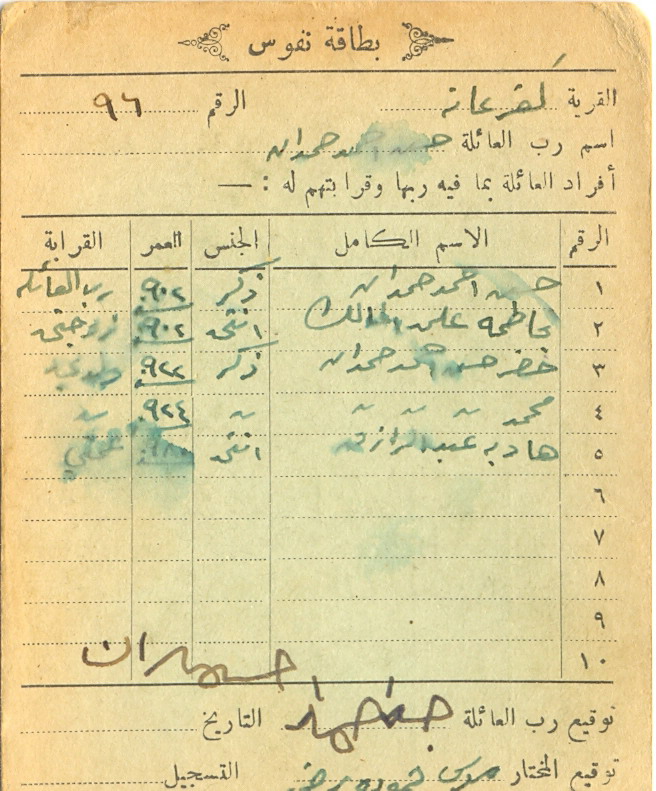 بطاقة نفوس
القرية كفرعانه الرقم ٩٦
اسم رب العائلة حسن احمد حمدان
أفراد العائلة بما فيه ربها وقرابتهم له : —
الرقم الاسم الكامل الجنس العمر القرابة
١ حسن احمد حمدان ذكر ٩٠٢ رب العائله
٢ فاطمه علي المالك انثى ٩٠٢ زوجتي
٣ خضر حسن احمد حمدان ذكر ٩٢٢
٤ محمد ~ ~ ~ ~ ٩٢٤ ~
٥ هاديه عبد الرازق انثى
٦
٧
٨
٩
١٠
توقيع رب العائلة التاريخ
توقيع المختار التسجيل